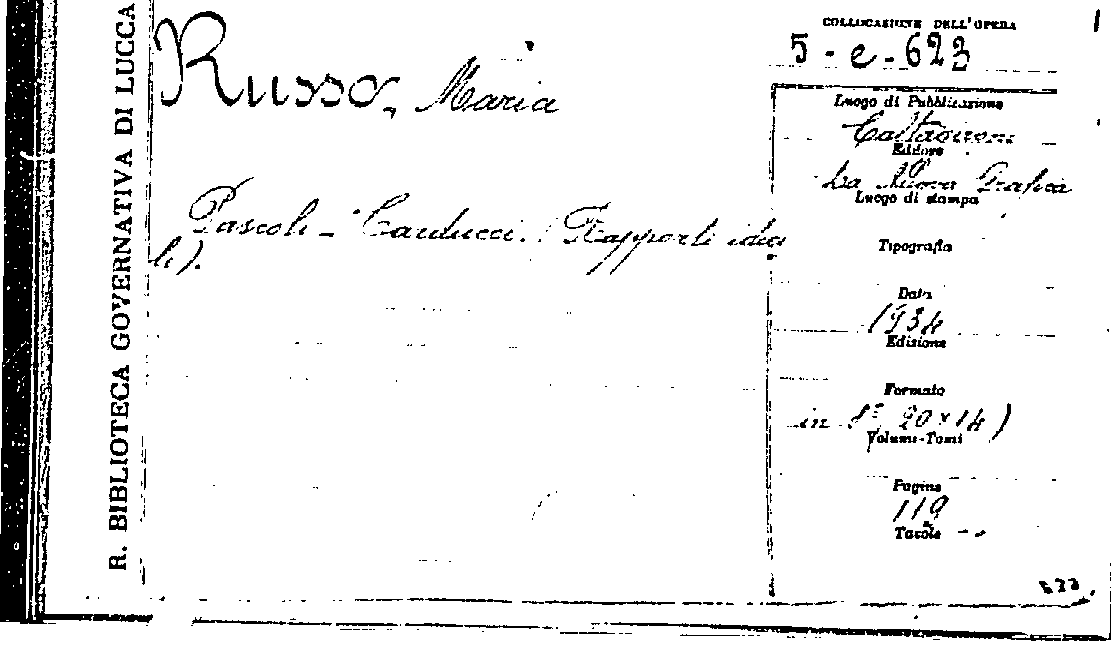 R. BIBLIOTECA GOVERNATIVA DI LUCCA
Russo, Maria
Pascoli - Carducci. (Rapporti idea
li).
COLLOCAZIONE DELL'OPERA
5 - e - 623
Luogo di Pubblicazione
Caltagirone
Editore
La Nuova Grafica
Luogo di stampa
Tipografia
Data
1934
Edizione
Formato
in 8° 20 x 14)
Volumi-Tomi
Pagine
119
Tavole - -